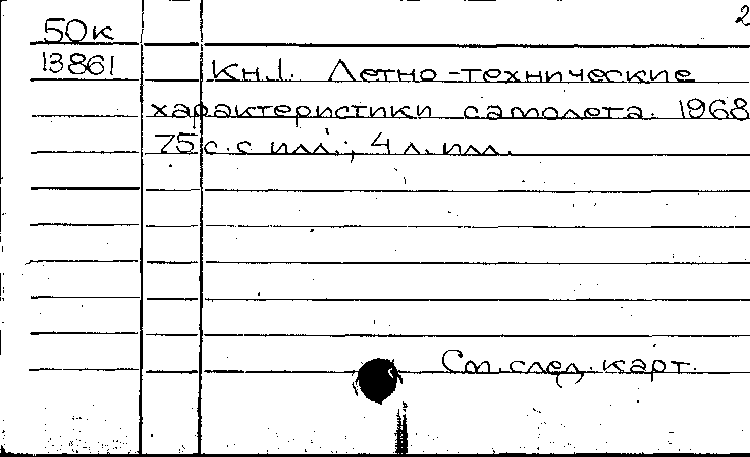 2
50к
13861 Кн.1. Летно-технические
характеристики самолета. 1968
75 с. с илл.; 4 л. илл.
См. след. карт.